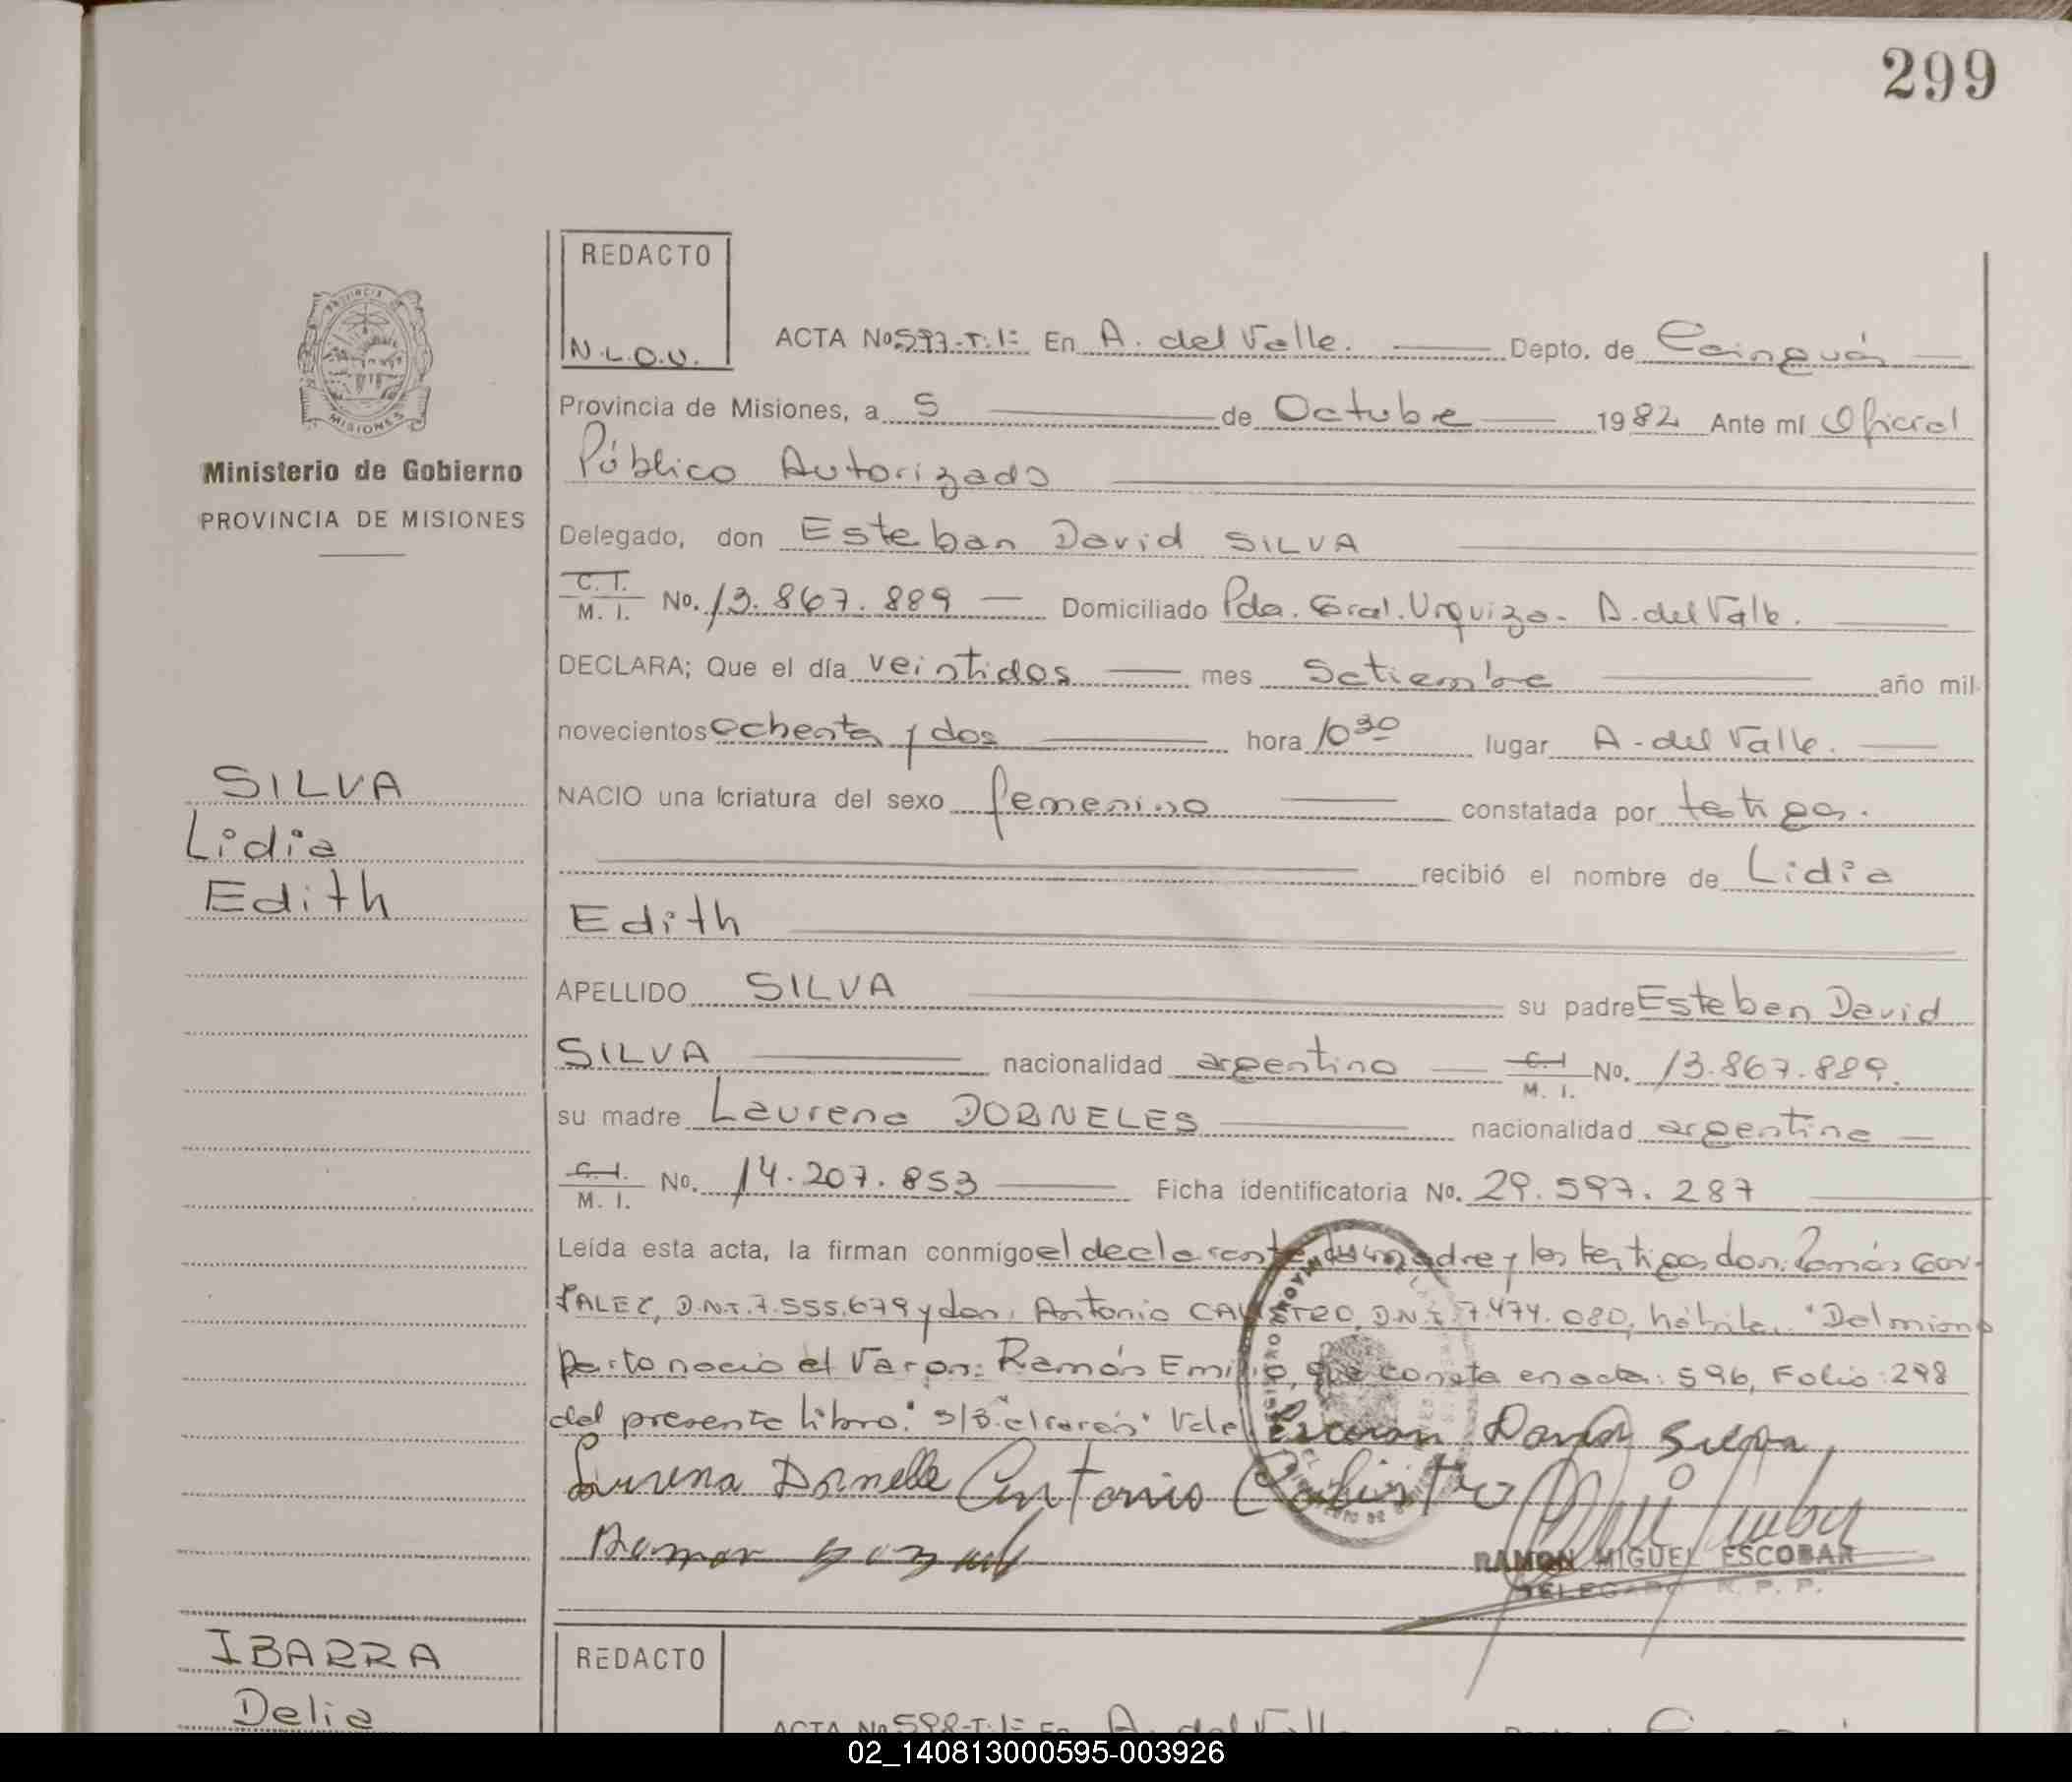 299
REDACTO
N.L.O.V.
ACTA No 597-T.1º En A. del Valle. Depto. de Cainguás
Provincia de Misiones, a 5 de Octubre 1982 Ante mí Oficial
Público Autorizado
Delegado, don Esteban David SILVA
C. I. M. I. No. 13.867.889 Domiciliado Pda. Gral. Urquiza - A. del Valle.
DECLARA; Que el día veintidos mes Setiembre año mil
novecientos ochenta y dos hora 10 30 lugar A. del Valle.
NACIO una criatura del sexo femenino constatada por testigos.
recibió el nombre de Lidia
Edith
APELLIDO SILVA su padre Esteban David
SILVA nacionalidad argentino C. I. M. I. No. 13.867.889.
su madre Laurena DORNELES nacionalidad argentina
C. I. M. I. No. 14.207.853 Ficha identificatoria No. 29.597.287
Leída esta acta, la firman conmigo el declarante, la madre y los testigos don: Ramón Gon-
ZALEZ, D.N.I. 7.555.679 y don: Antonio CALISTRO, D.N.I. 7.474.080, hábiles. "Del mismo
parto nació el Varon: Ramón Emilio, que consta en acta: 596, Folio: 298
del presente libro." S/B "el varón" Vale
David Silva
Laurena Dornelle Antonio Calistro
Ramon
RAMON MIGUEL ESCOBAR
DELEGADO R. P. P.
PROVINCIA
MISIONES
Ministerio de Gobierno
PROVINCIA DE MISIONES
SILVA
Lidia
Edith
IBARRA
Delia
REDACTO
ACTA No 598-T.1º En A. del Valle
02_140813000595-003926